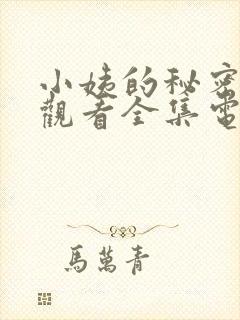 小姨的秘密
觀看全集電
馬萬青